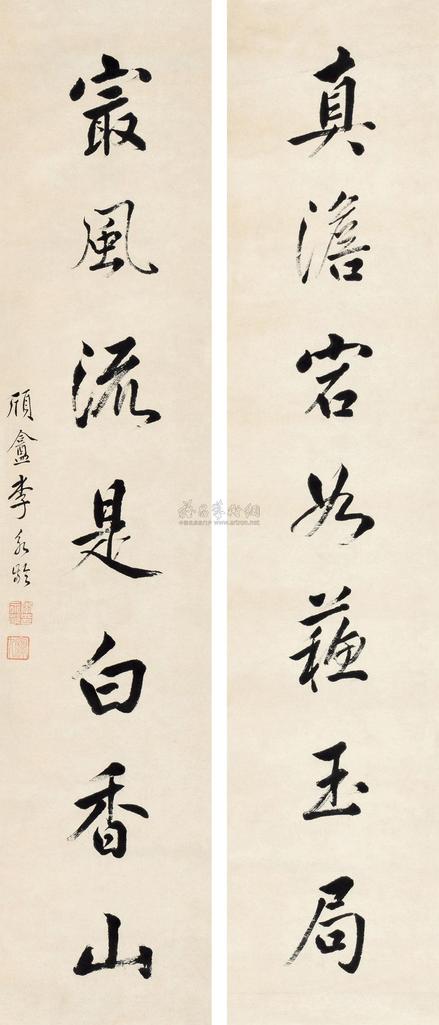 真澹宕如蘓玉局
㝡風流是白香山
頎盦李永齡
雅昌藝術網
www.artron.net